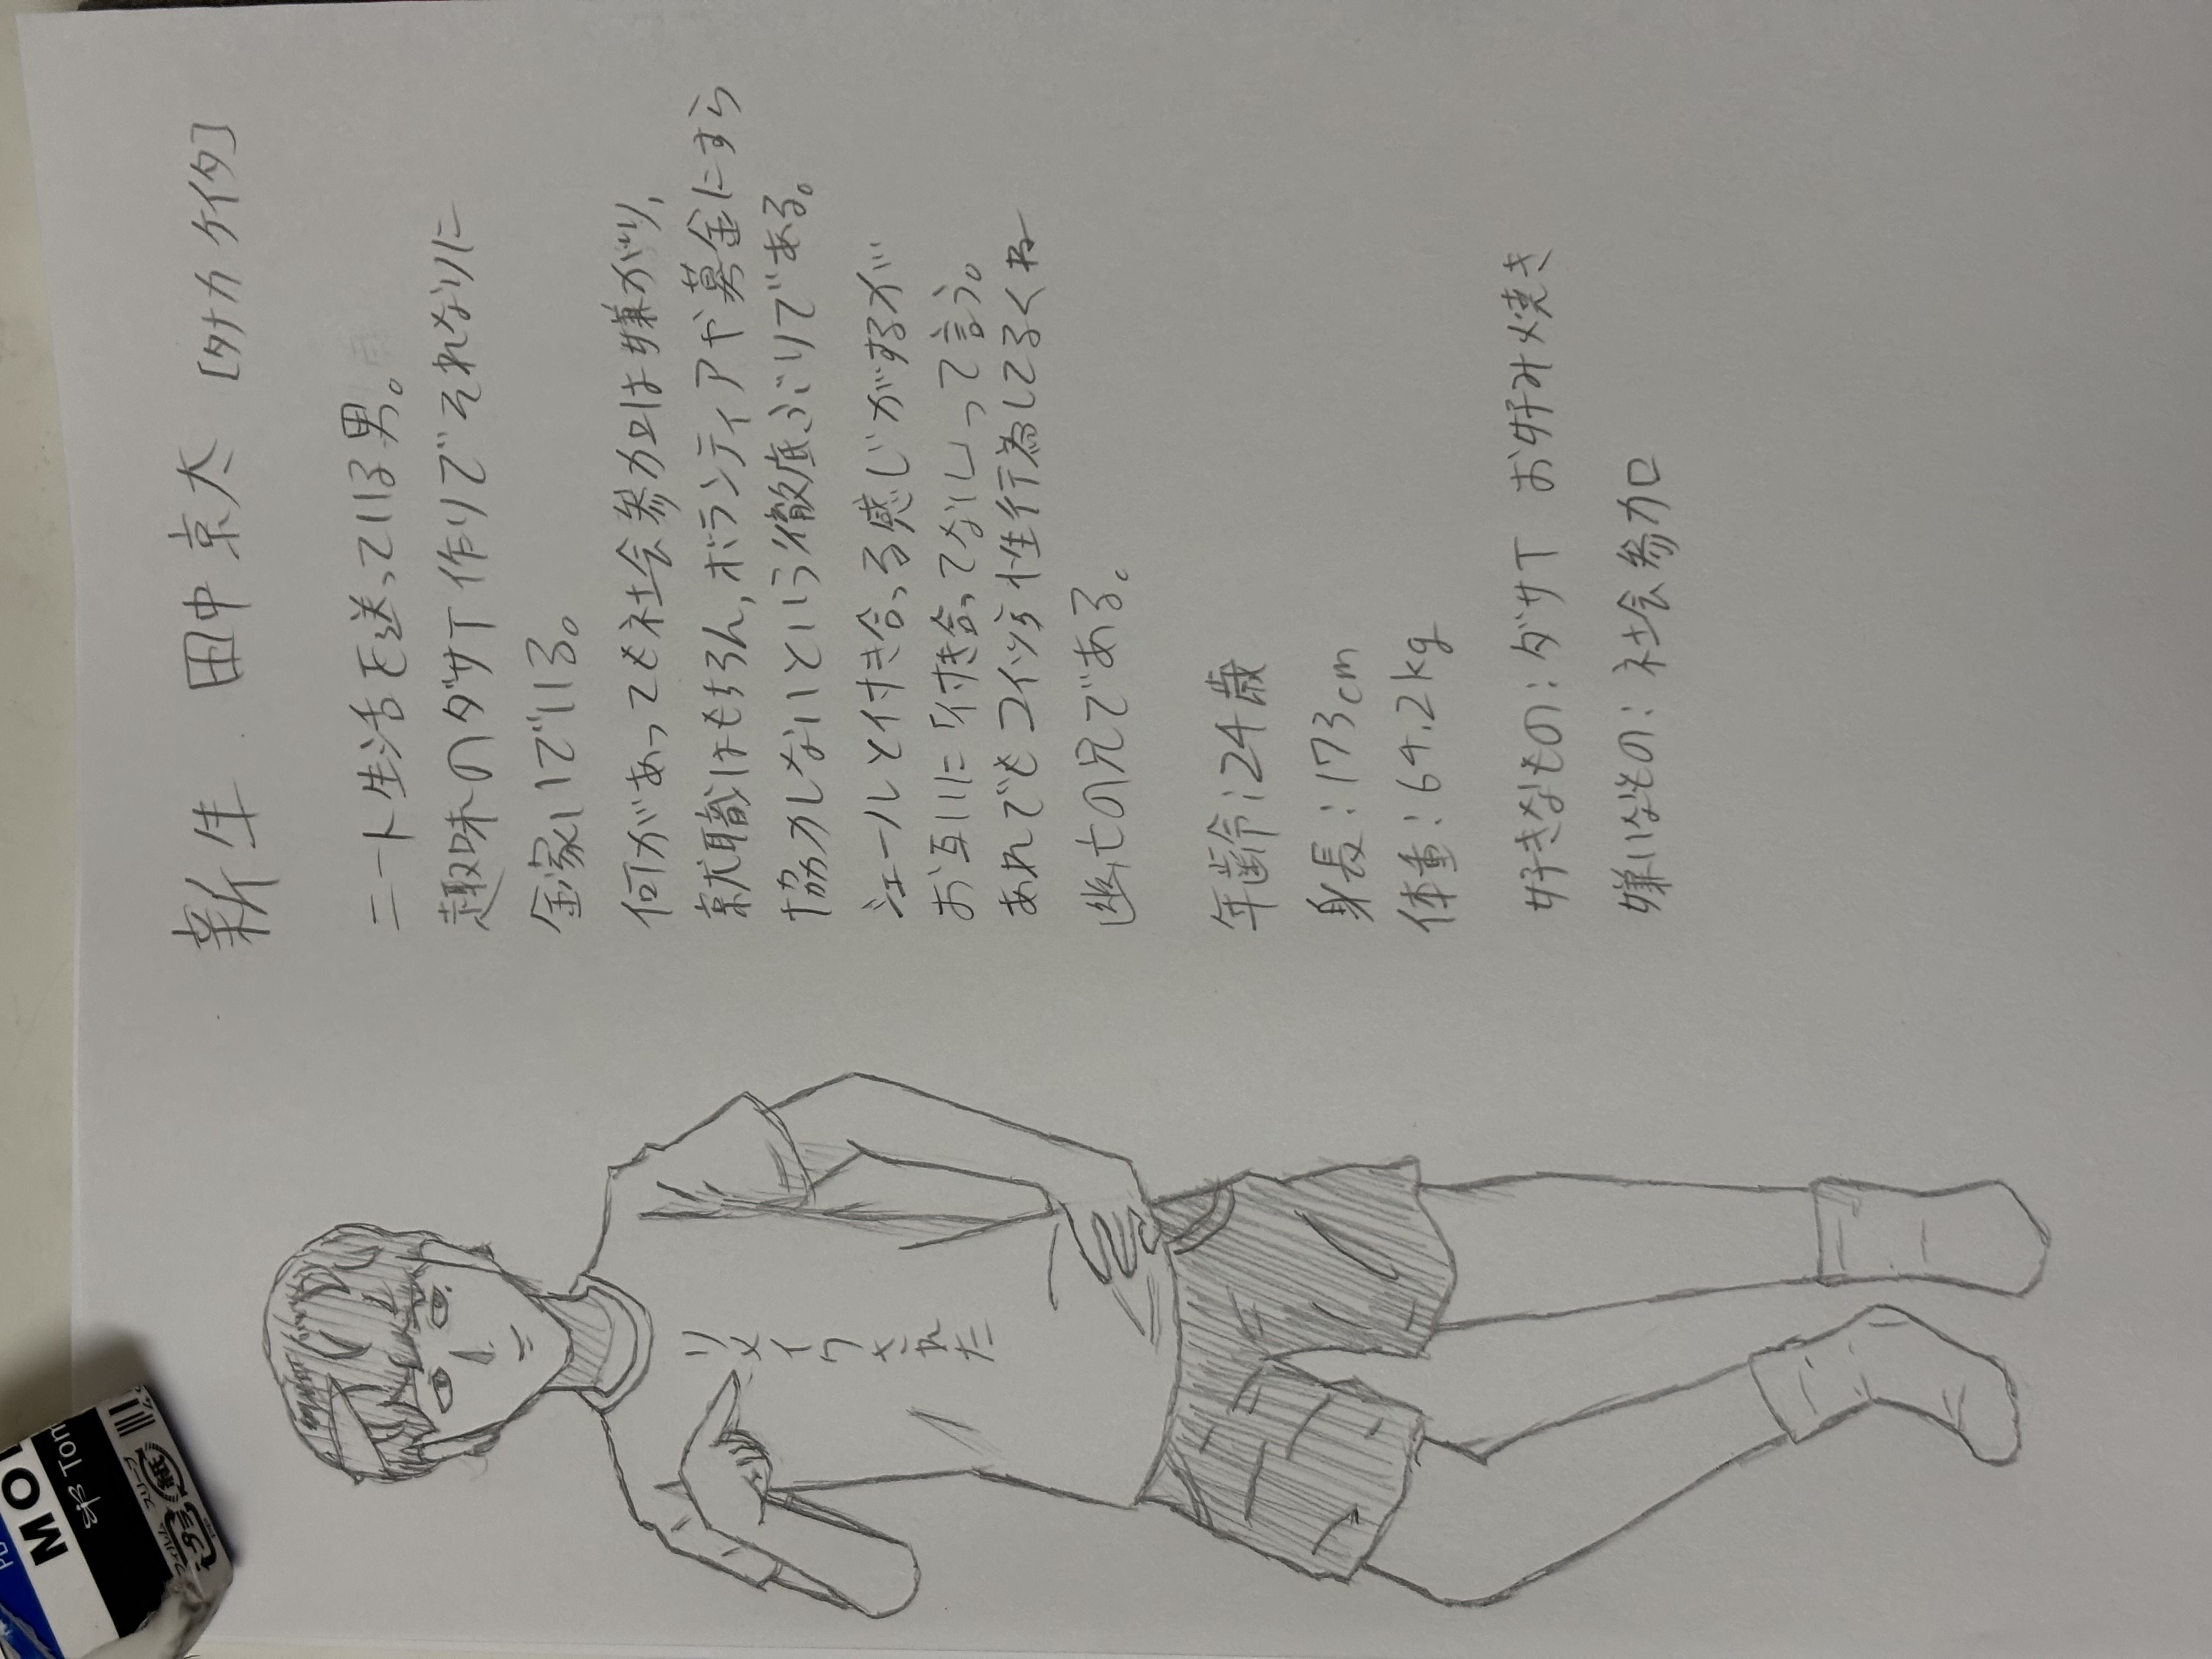 新生 田中京太 [タナカケイタ]
ニート生活を送っている男。
趣味のダサT作りでそれなりに
金家いでいる。
何があっても社会参加は嫌がり、
就職はもちろん、ボランティアや募金にすら
協力しないという徹底ぶりである。
ジェールと付き合ってる感じがするが
お互いに「付き合ってない」って言う。
あれでもコイツら性行為してるくね
幽七の兄である。
年齢:24歳
身長:173cm
体重:64.2kg
好きなもの:ダサT お好み焼き
嫌いなもの:社会参加
リメイクされた
MO
Tom
スリーブ
紙